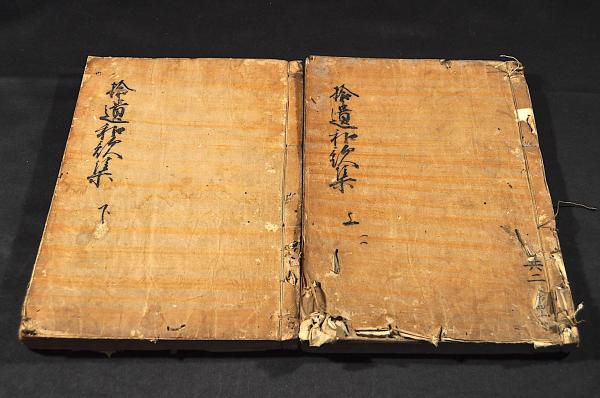 拾遺和歌集
上
六二
拾遺和歌集
下